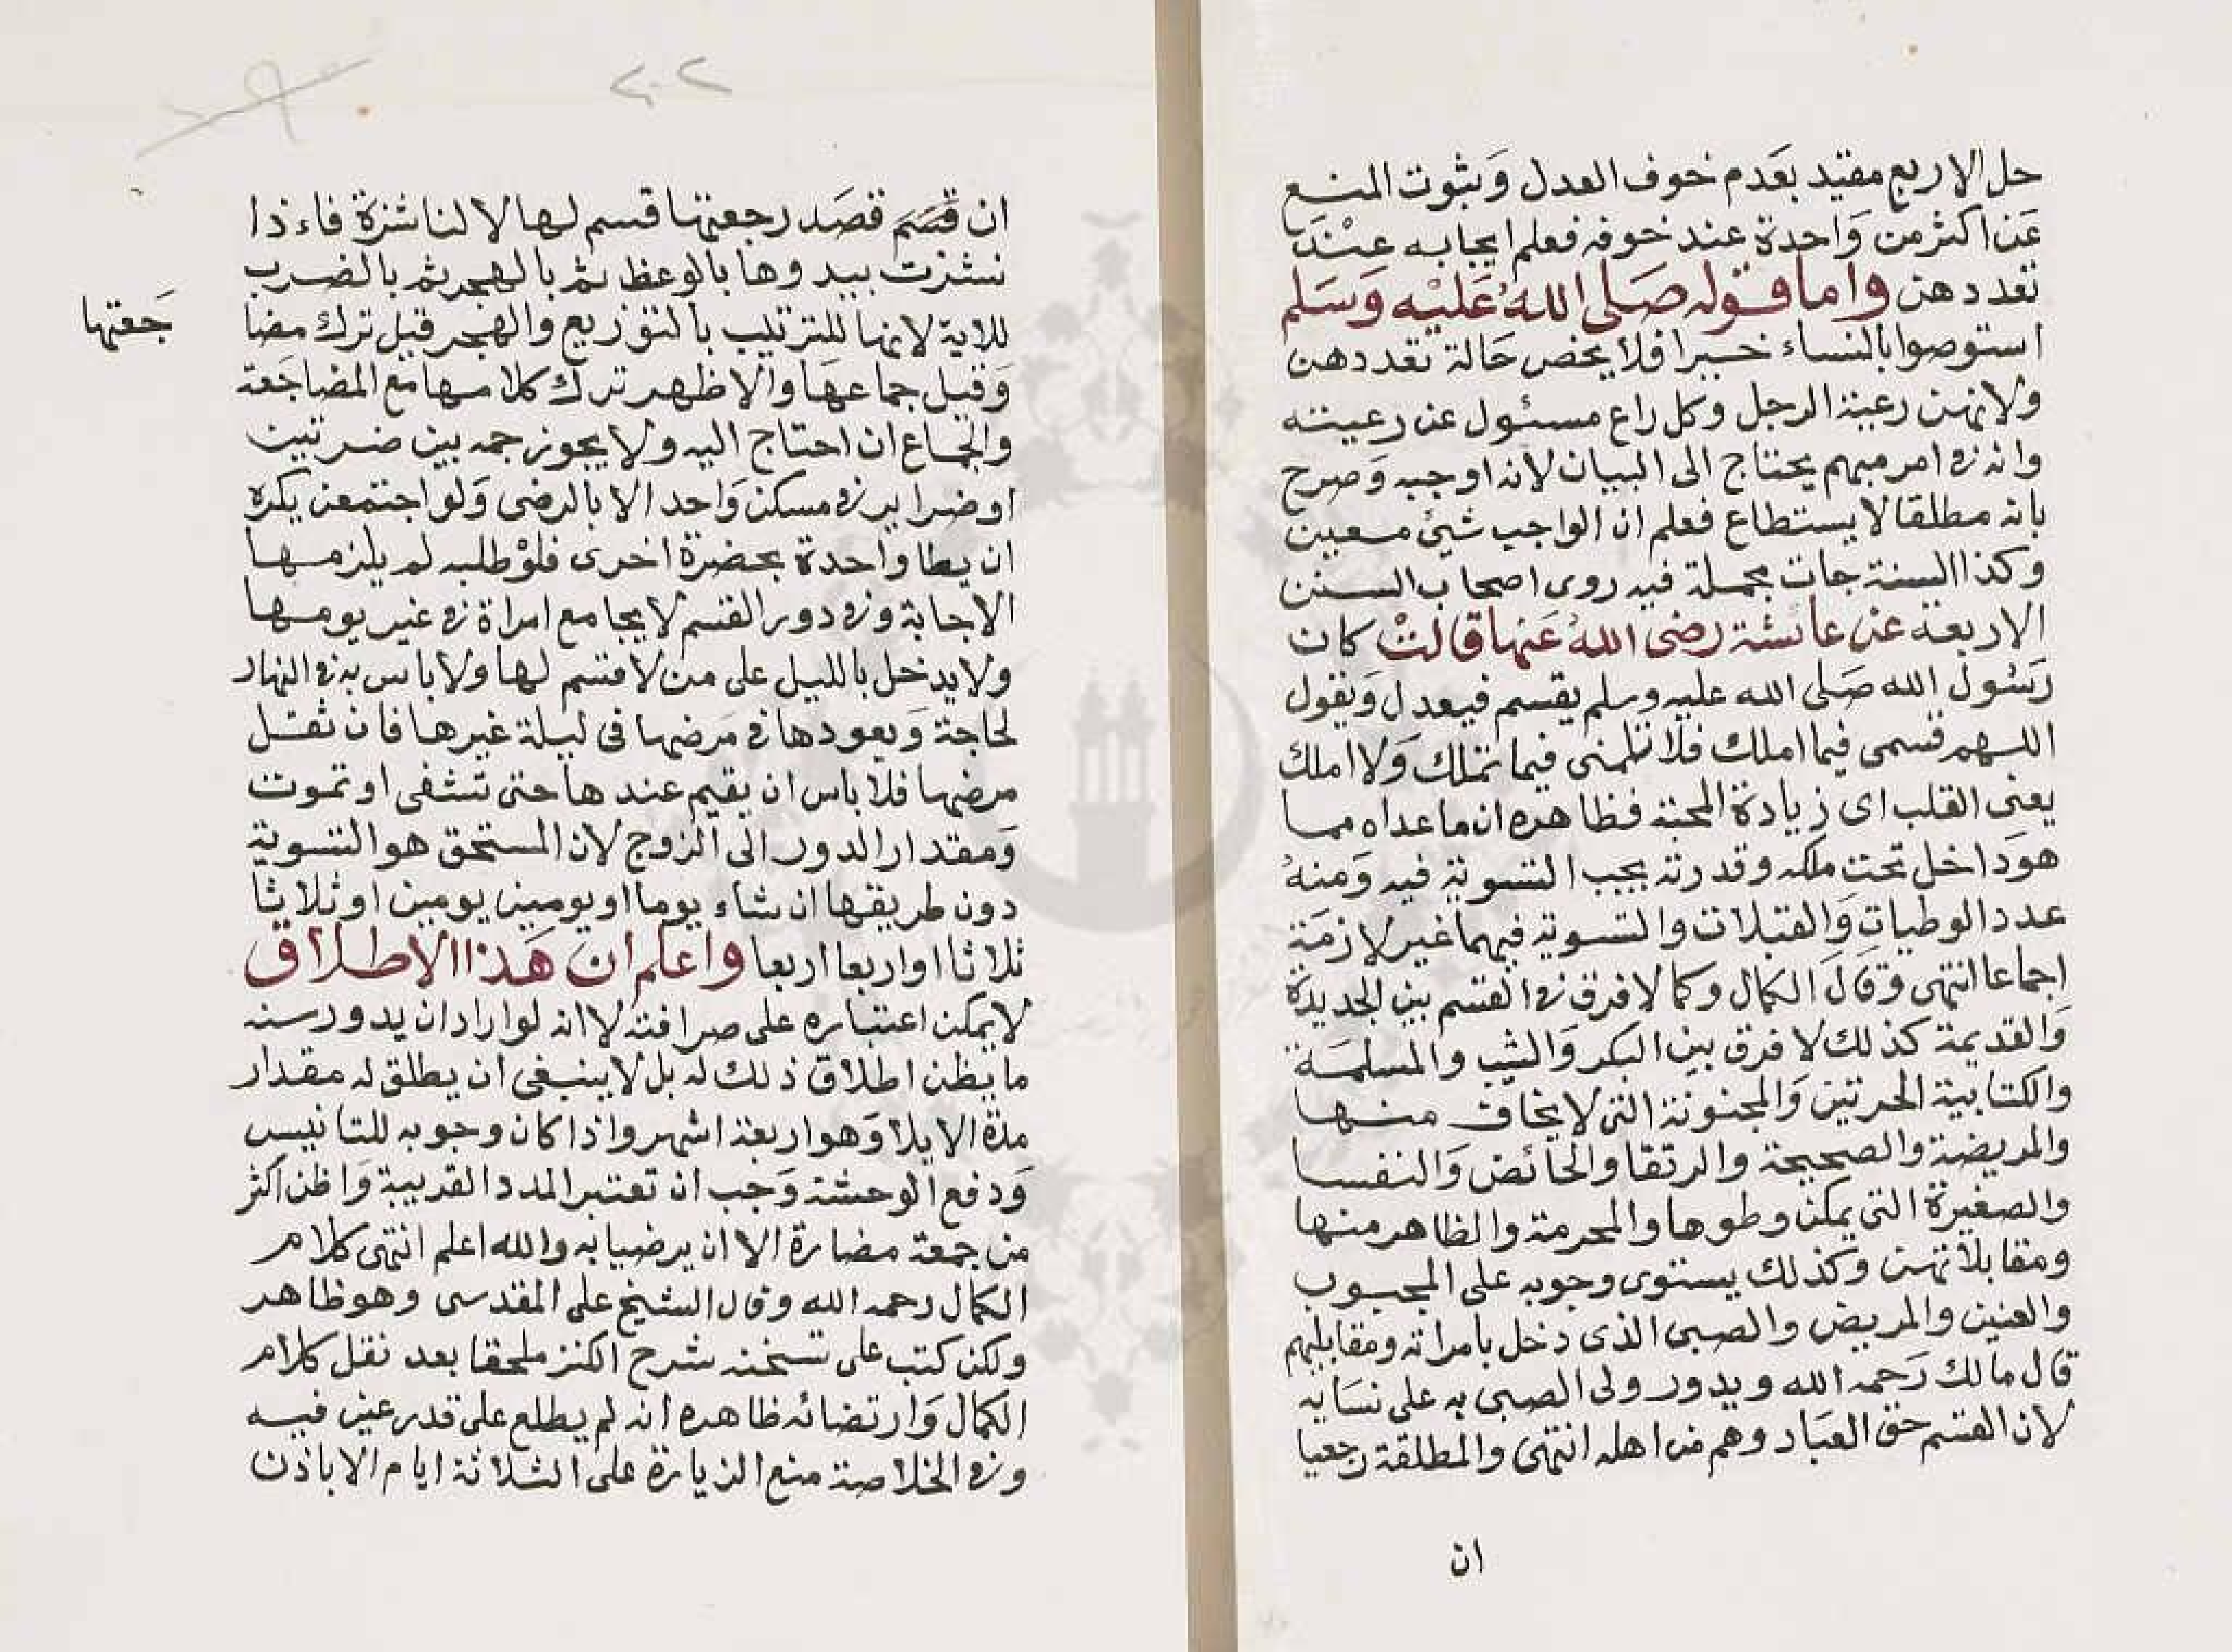 حل الاربع مقيد بعدم خوف العدل وبثوت المنع
عن اكثر من واحدة عند خوفه فعلم ايجابه عند
تعددهن واما قوله صلى الله عليه وسلم
استوصوا بالنساء خيرا فلا يخص حالة تعددهن
ولانهن رعية الرجل وكل راع مسئول عن رعيته
وانه في امر مبهم يحتاج الى البيان لانه اوجبه وصرح
بانه مطلقا لا يستطاع فعلم ان الواجب شئ معين
وكذا السنة جات مجملة فيه روى اصحاب السنن
الاربعة عن عائشة رضى الله عنها قالت كان
رسول الله صلى الله عليه وسلم يقسم فيعدل ويقول
اللهم قسمى فيما املك فلا تلمنى فيما تملك ولا املك
يعنى القلب اى زيادة المحبة فظاهره ان ما عداه مما
هو داخل تحت ملكه وقدرته يجب التسوية فيه ومنه
عدد الوطيات والقبلات والتسوية فيهما غير لازمة
اجماعا انتهى وقال الكمال وكما لا فرق في القسم بين الجديدة
والقديمة كذلك لا فرق بين البكر والثيب والمسلمة
والكتابية الحرتين والمجنونة التى لا يخاف منها
والمريضة والصحيحة والرتقا والحائض والنفسا
والصغيرة التى يمكن وطوها والمحرمة والظاهر منها
ومقابلاتهن وكذلك يستوى وجوبه على المجبوب
والعنين والمريض والصبى الذى دخل بامراته ومقابليهم
قال مالك رحمه الله ويدور ولى الصبى به على نسايه
لان القسم حق العباد وهم من اهله انتهى والمطلقة رجعيا
ان
٢٠٢
ان قصم قصد رجعتها قسم لها لا لناشزة فاءذا
نشزت بيدوها بالوعظ ثم بالهجر ثم بالضرب
للاية لانها للترتيب بالتوزيع والهجر قيل ترك مضا
جعتها
وقيل جماعها والاظهر ترك كلامها مع المضاجعة
والجماع ان احتاج اليه ولا يجوز جمعه بين ضرتين
او ضراير في مسكن واحد الا بالرضى ولو اجتمعن يكره
ان يطا واحدة بحضرة اخرى فلو طلبه لم يلزمها
الاجابة وفي دور القسم لا يجامع امراة في غير يومها
ولا يدخل بالليل على من لا قسم لها ولا باس به في النهار
لحاجة ويعودها في مرضها فى ليلة غيرها فان ثقل
مرضها فلا باس ان يقيم عندها حتى تشفى او تموت
ومقدار الدور الى الزوج لان المستحق هو التسوية
دون طريقها ان شاء يوما او يومين يومين او ثلاثا
ثلاثا او اربعا اربعا واعلم ان هذا الاطلاق
لا يمكن اعتباره على صرافته لانه لو اراد ان يدور سنه
ما يظن اطلاق ذلك له بل لا ينبغى ان يطلق له مقدار
مدة الايلا وهو اربعة اشهر واذا كان وجوبه للتانيس
ودفع الوحشة وجب ان تعتبر المدد القريبة واظن اكثر
من جمعة مضارة الا ان يرضيا به والله اعلم انتهى كلام
الكمال رحمه الله وقال الشيخ على المقدسى وهو ظاهر
ولكن كتب على نسخته شرح الكنز ملحقا بعد نقل كلام
الكمال وارتضائه ظاهره انه لم يطلع على قدر عين فيه
وفي الخلاصة منع الزيارة على الثلاثة ايام الا باذن